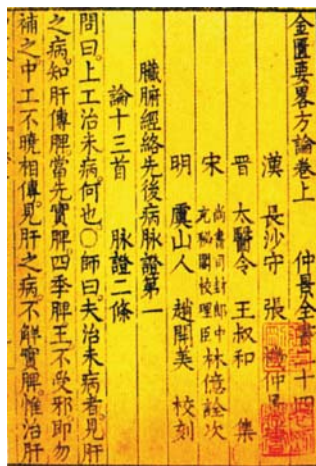 金匱要畧方論卷上 仲景全書二十四
漢 長沙守 張 機仲景
晉 太醫令 王叔和 集
宋 尚書司封郎中
充秘閣校理臣 林億詮次
明 虞山人 趙開美 校刻
臟腑經絡先後病脉證第一
論十三首 脉證二條
問曰上工治未病何也○師曰夫治未病者見肝
之病知肝傳脾當先實脾四季脾王不受邪即勿
補之中工不曉相傳見肝之病不解實脾惟治肝